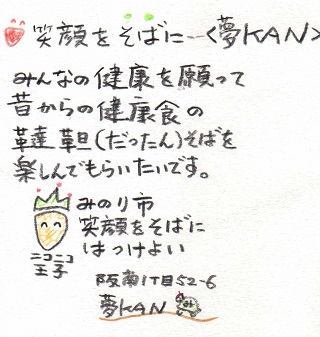 笑顔をそばに…<夢KAN>
みんなの健康を願って
昔からの健康食の
韃靼(だったん)そばを
楽しんでもらいたいです。
みのり市
笑顔をそばに
はつけよい
ニコニコ
王子
阪南1丁目52-6
夢KAN